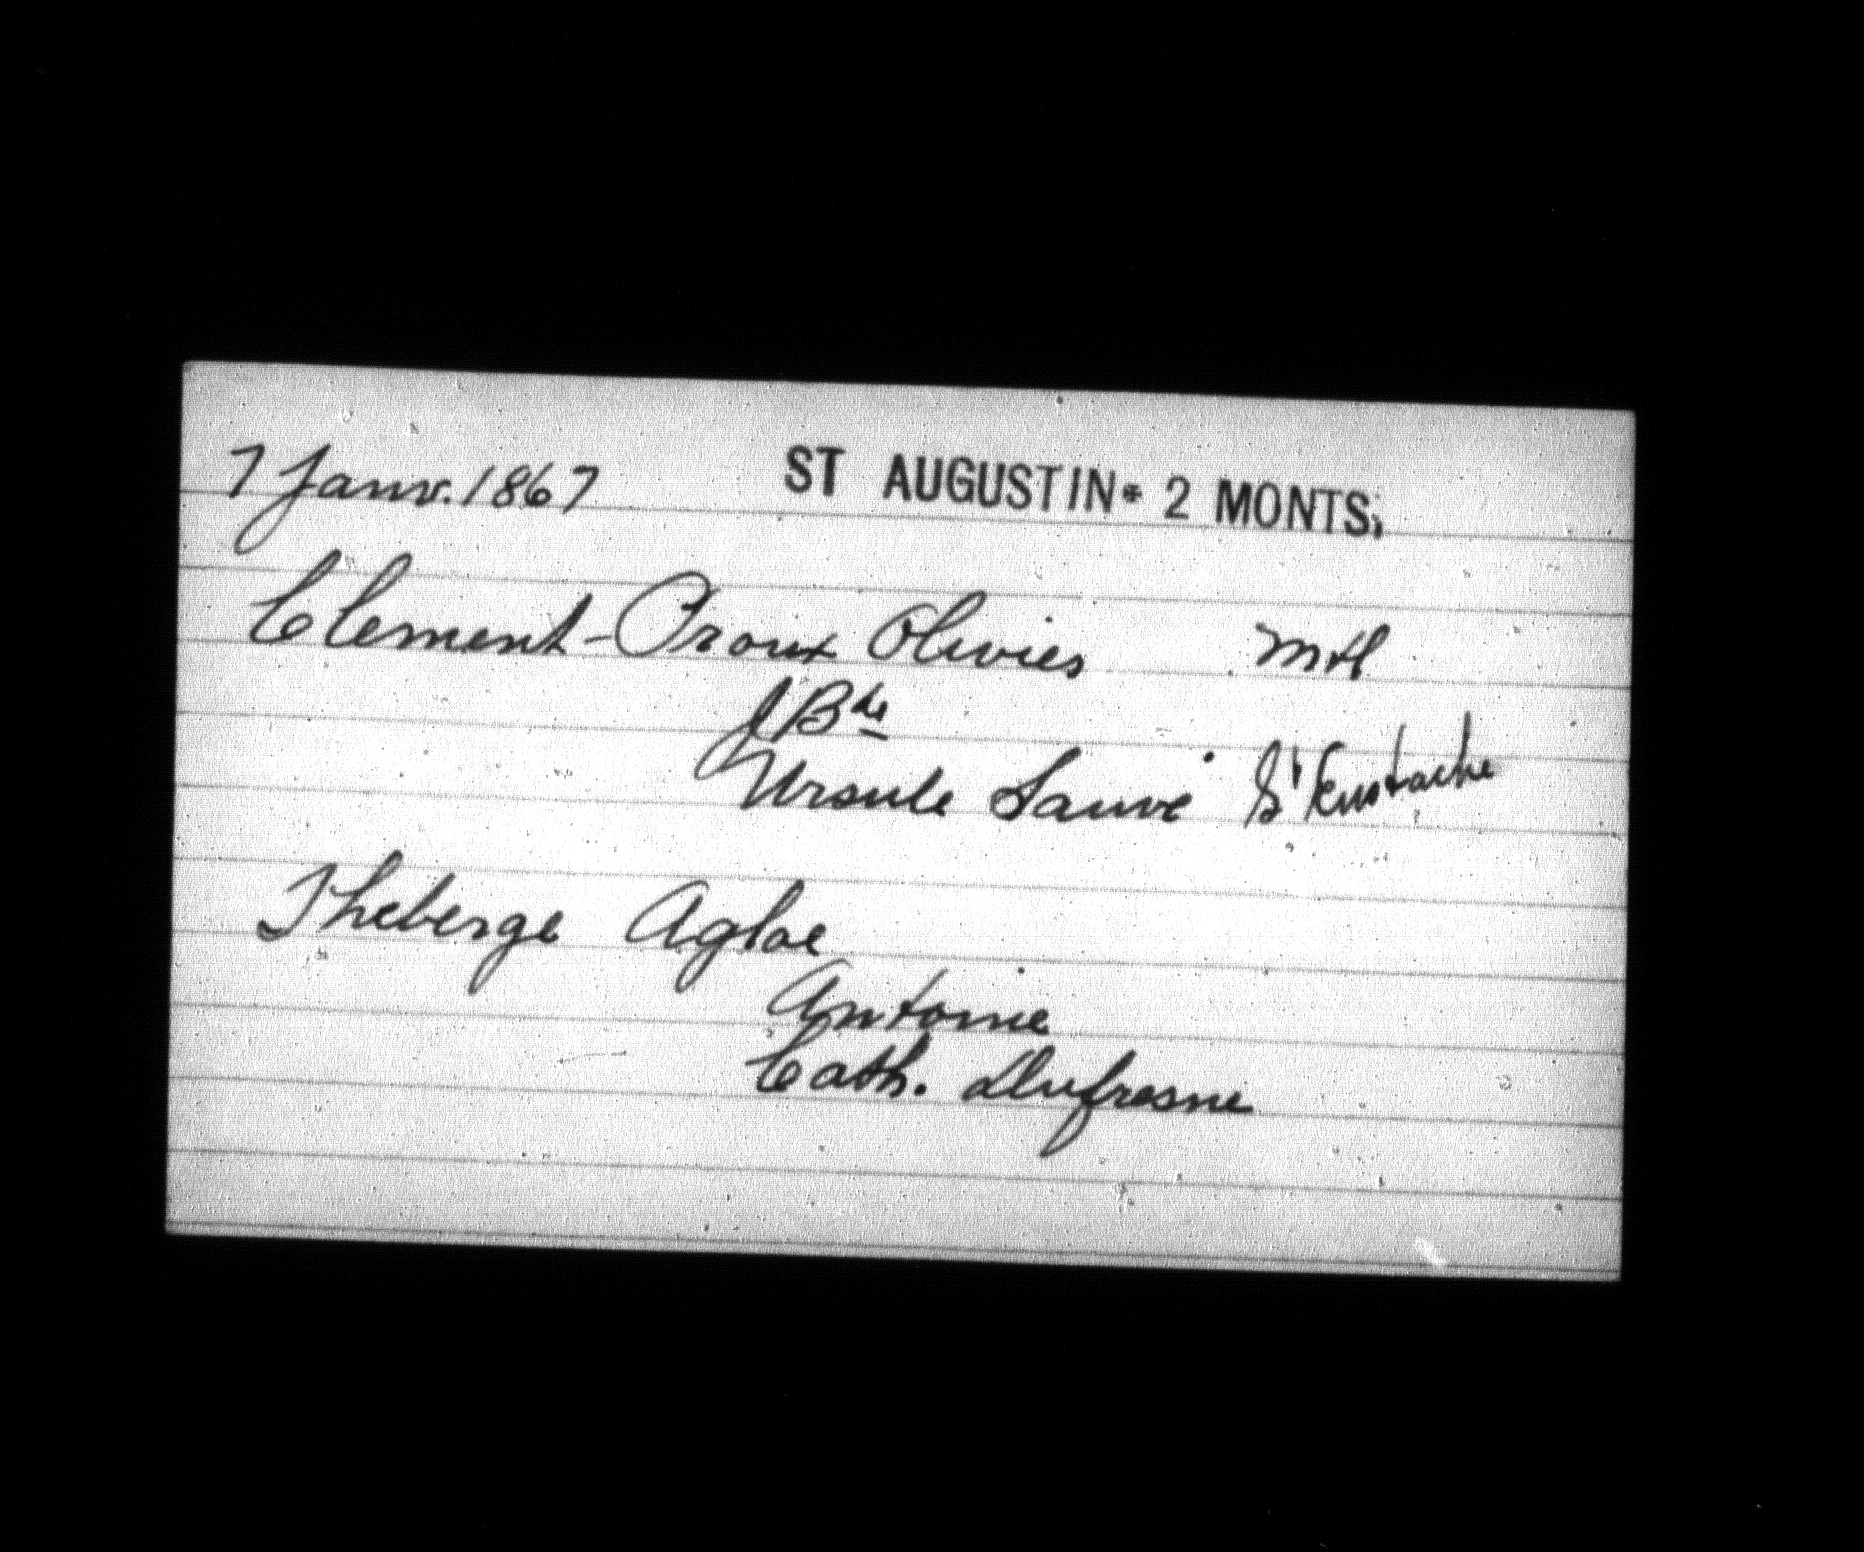 7 Janv. 1867 ST AUGUSTIN * 2 MONTS.
Clement-Proux Olivier Mtl
J Bte
Ursule Sauvé St Eustache
Theberge Aglae
Antoine
Cath. Dufresne